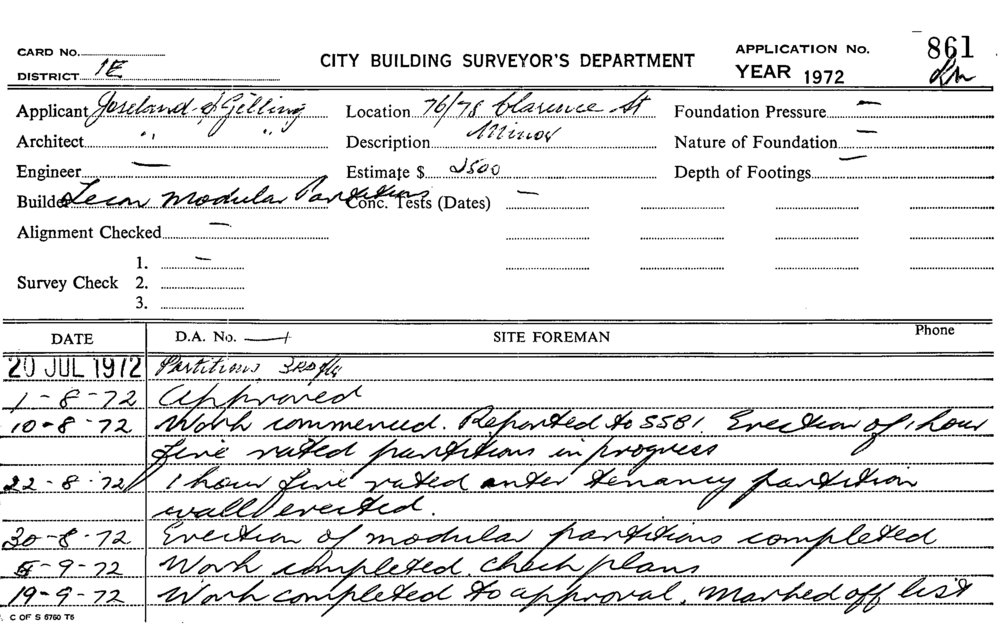 CARD No.
DISTRICT 1E
CITY BUILDING SURVEYOR'S DEPARTMENT
APPLICATION No. 861
YEAR 1972
Applicant Joseland & Gilling
Location 76/78 Clarence St
Foundation Pressure —
Architect " "
Description Minor
Nature of Foundation —
Engineer —
Estimate $ 2500
Depth of Footings —
Builder Tecon Modular Partitions
Conc. Tests (Dates) —
Alignment Checked —
Survey Check
1. —
2.
3.
DATE D.A. No. — SITE FOREMAN Phone
20 JUL 1972 Partitions 3RD flr
1-8-72 Approved
10-8-72 Work commenced. Reported to SSB1. Erection of 1 hour
fire rated partitions in progress
22-8-72 1 hour fire rated inter tenancy partition
wall erected.
30-8-72 Erection of modular partitions completed
5-9-72 Work completed. Check plans
19-9-72 Work completed to approval. Marked off list
C OF S 6760 T5